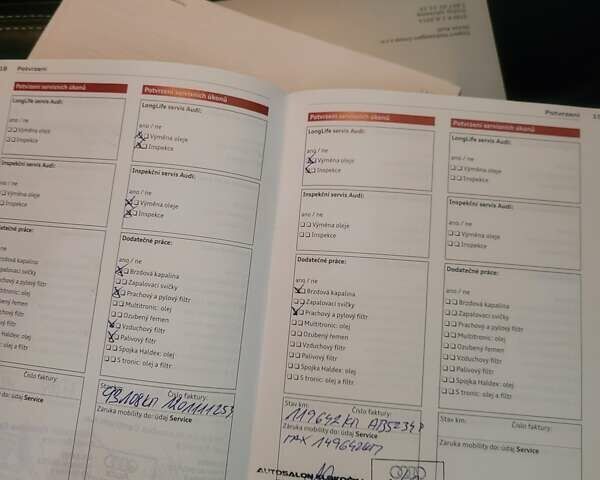 18 Potvrzení
Potvrzení servisních úkonů
LongLife servis Audi:
ano / ne
Výměna oleje
Inspekce
Inspekční servis Audi:
ano / ne
Výměna oleje
Inspekce
Dodatečné práce:
ano / ne
Brzdová kapalina
Zapalovací svíčky
Prachový a pylový filtr
Multitronic: olej
Ozubený řemen
Vzduchový filtr
Palivový filtr
Spojka Haldex: olej
S tronic: olej a filtr
Číslo faktury:
údaj Service
Potvrzení servisních úkonů
LongLife servis Audi:
ano / ne
Výměna oleje
Inspekce
Inspekční servis Audi:
ano / ne
Výměna oleje
Inspekce
Dodatečné práce:
ano / ne
Brzdová kapalina
Zapalovací svíčky
Prachový a pylový filtr
Multitronic: olej
Ozubený řemen
Vzduchový filtr
Palivový filtr
Spojka Haldex: olej
S tronic: olej a filtr
Stav km: Číslo faktury:
Záruka mobility do: údaj Service
Potvrzení
Potvrzení servisních úkonů
LongLife servis Audi:
ano / ne
Výměna oleje
Inspekce
Inspekční servis Audi:
ano / ne
Výměna oleje
Inspekce
Dodatečné práce:
ano / ne
Brzdová kapalina
Zapalovací svíčky
Prachový a pylový filtr
Multitronic: olej
Ozubený řemen
Vzduchový filtr
Palivový filtr
Spojka Haldex: olej
S tronic: olej a filtr
Stav km: Číslo faktury:
119642 km
Záruka mobility do: údaj Service
MAX 149642 km
AUTOSALON
Potvrzení servisních úkonů
LongLife servis Audi:
ano / ne
Výměna oleje
Inspekce
Inspekční servis Audi:
ano / ne
Výměna oleje
Inspekce
Dodatečné práce:
ano / ne
Brzdová kapalina
Zapalovací svíčky
Prachový a pylový filtr
Multitronic: olej
Ozubený řemen
Vzduchový filtr
Palivový filtr
Spojka Haldex: olej
S tronic: olej a filtr
Stav km: Číslo faktury:
Záruka mobility do: údaj Service